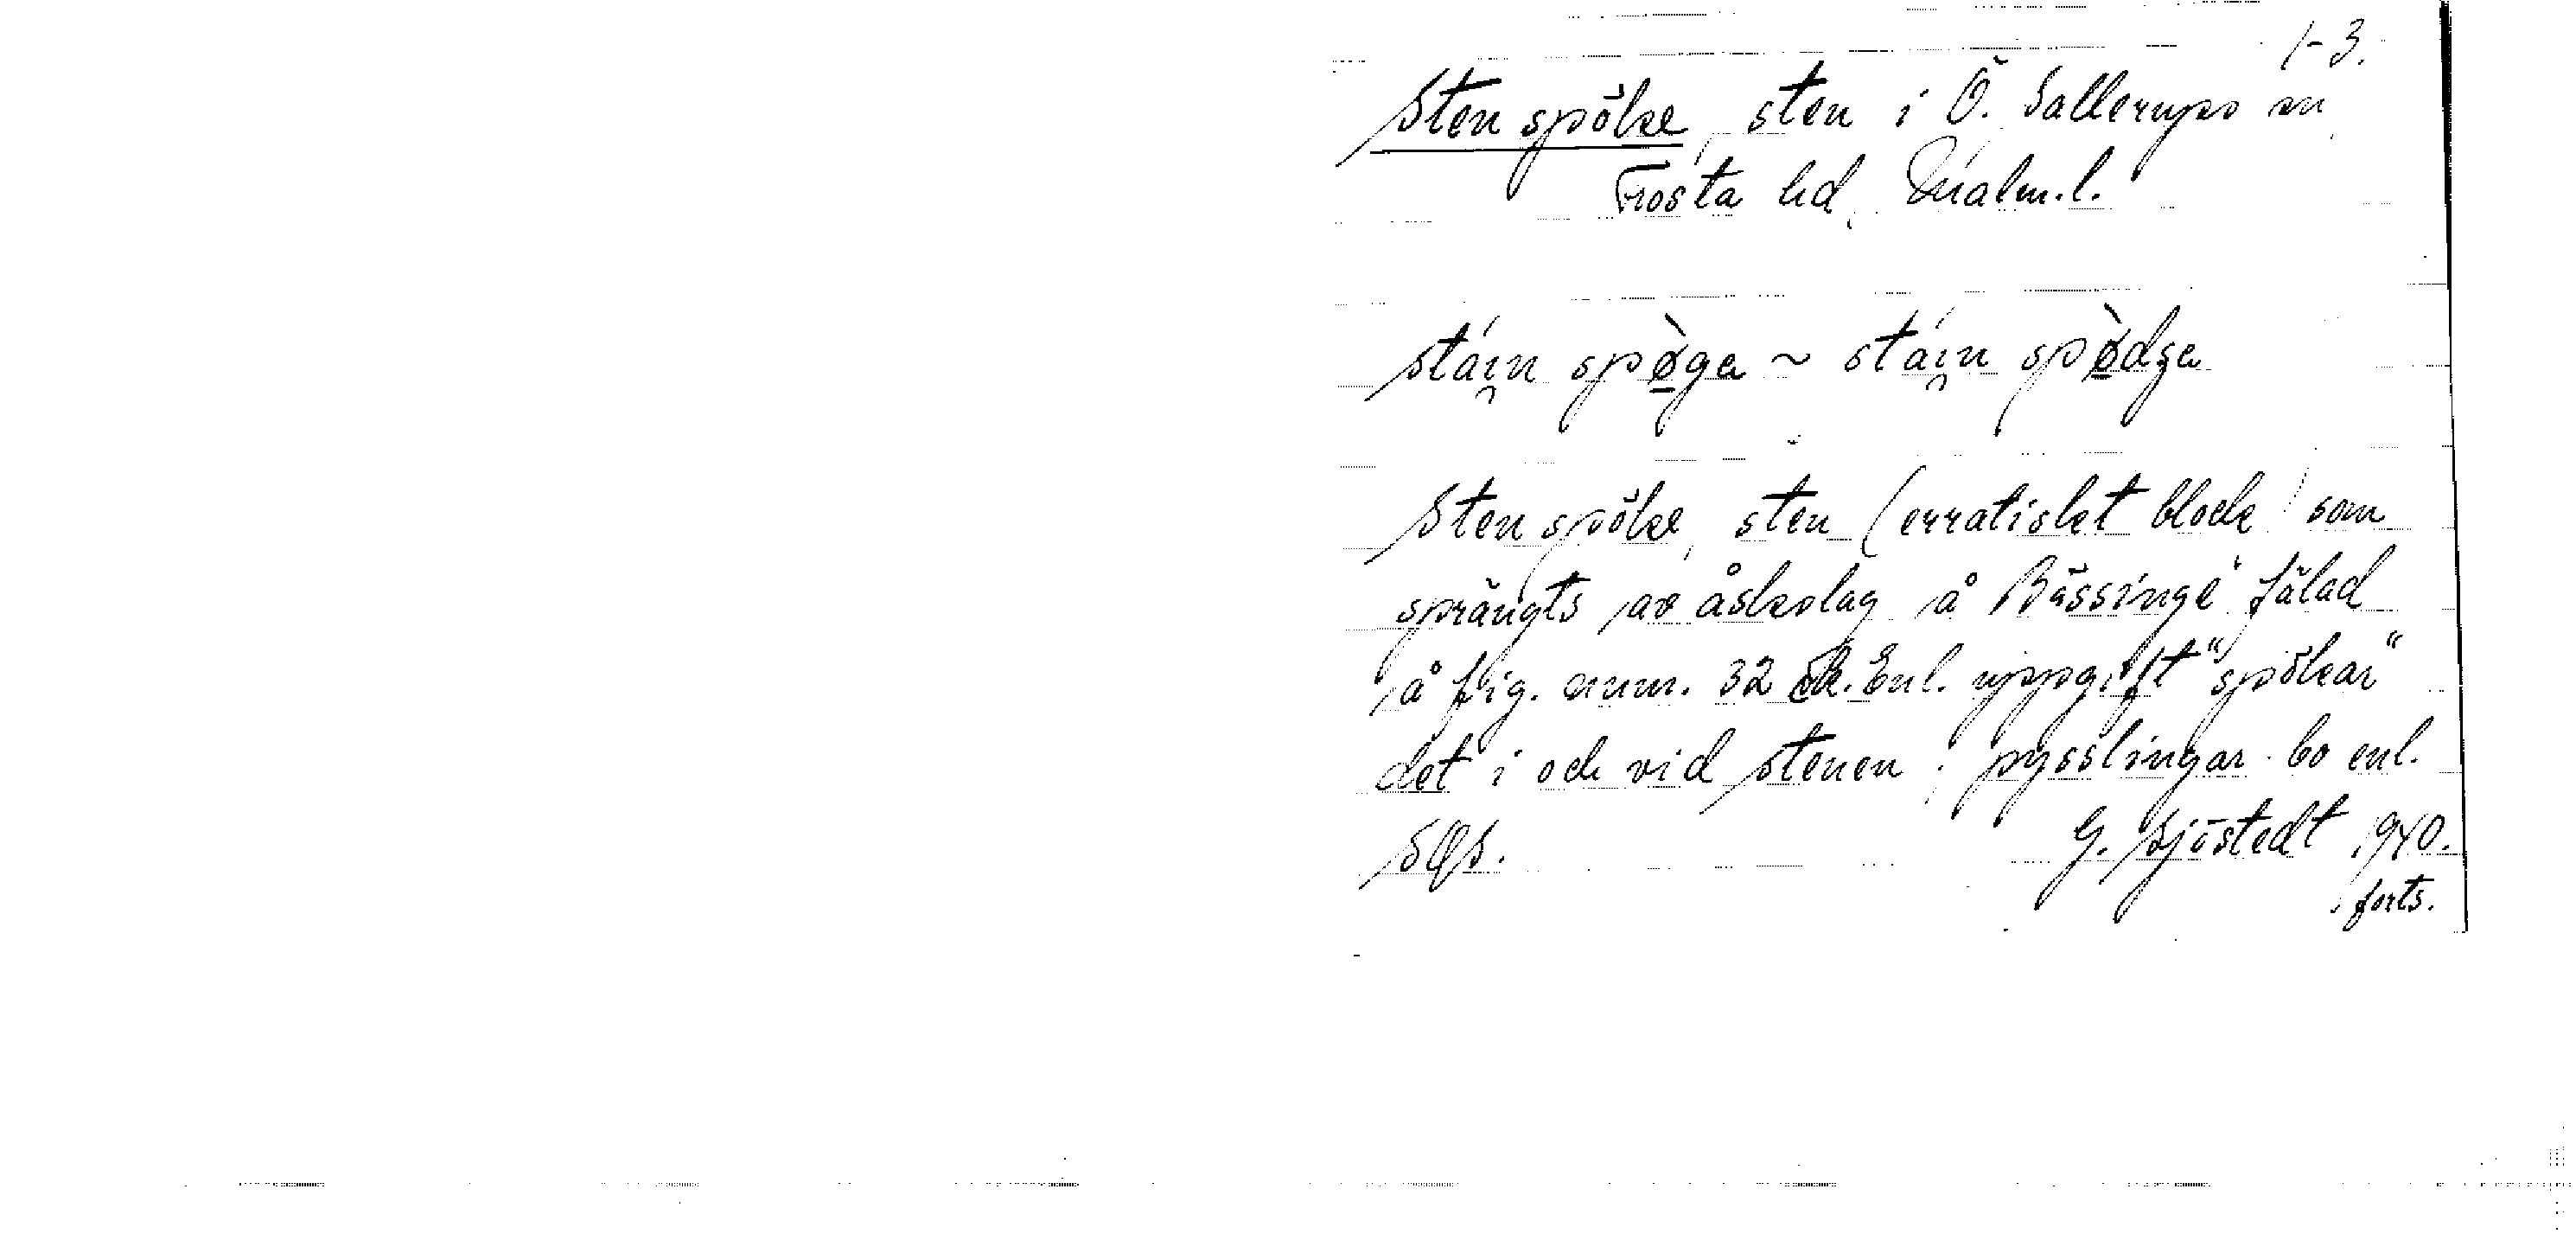 1-3.
Sten spöke, sten i Ö. Sallerups sn,
Frosta hd, Malm.l.
stáin spø̀ga ~ stáin spø̀dʒa
Sten spöke, sten (erratiskt block) som
sprängts av åskslag å Bässinge fälad
å fig. anm. 32 Enl. uppgift "spökar"
det i och vid stenen; pysslingar bo enl.
G. Sjöstedt 1940.
forts.